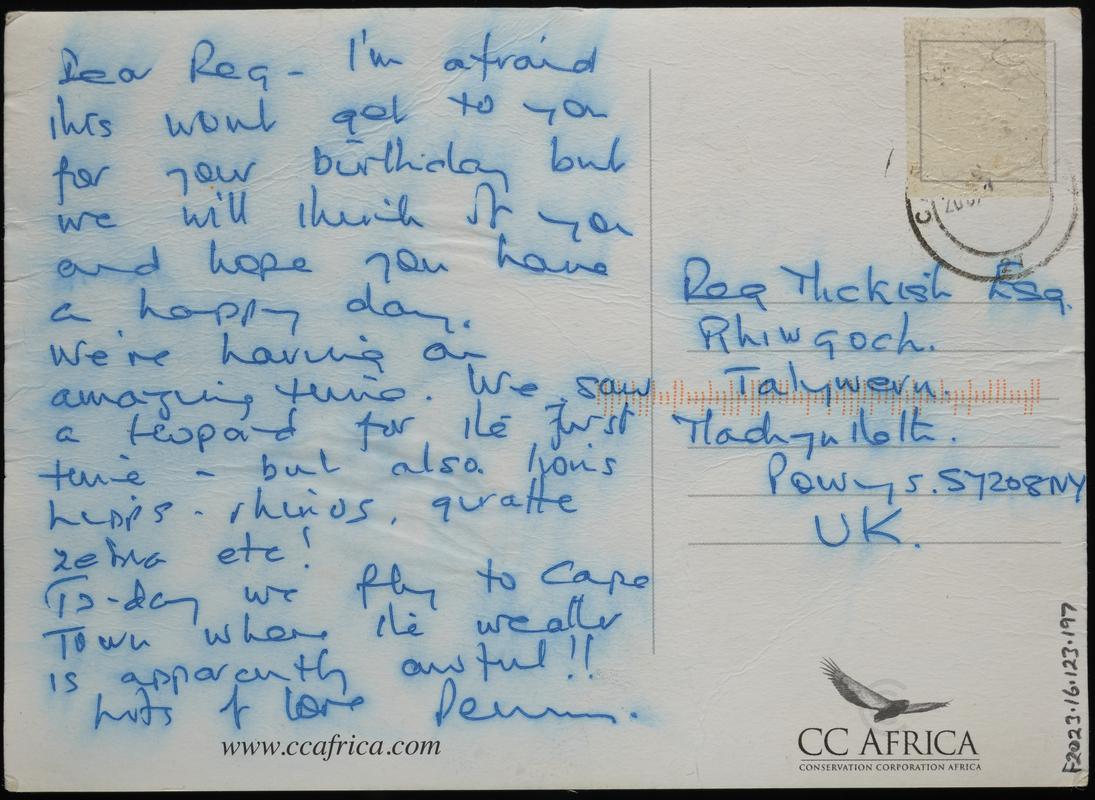 Dear Reg - I'm afraid
this wont get to you
for your birthday but
we will think of you
and hope you have
a happy day.
We're having an
amazing time. We saw
a leopard for the first
time - but also lions
hippos - rhinos, giraffe
zebra etc!
To-day we fly to Cape
Town where the weather
is apparently awful!!
Lots of love
www.ccafrica.com
Reg Thickish Esq.
Rhiwgoch.
Talywern.
Machynlleth.
Powys. SY208NY
UK.
CC AFRICA
CONSERVATION CORPORATION AFRICA
F2023.16.123.197